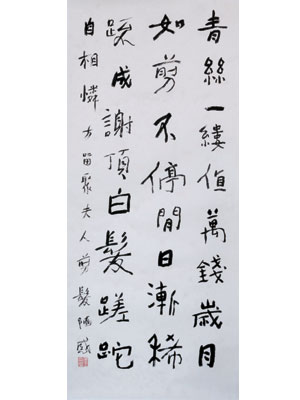 青絲一縷值萬錢歲月
如剪不停閒日漸稀
疏成謝頂白髮蹉跎
自相憐 方留聚夫人剪髮